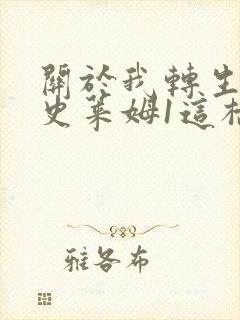 關於我轉生
史萊姆1這
雅各布